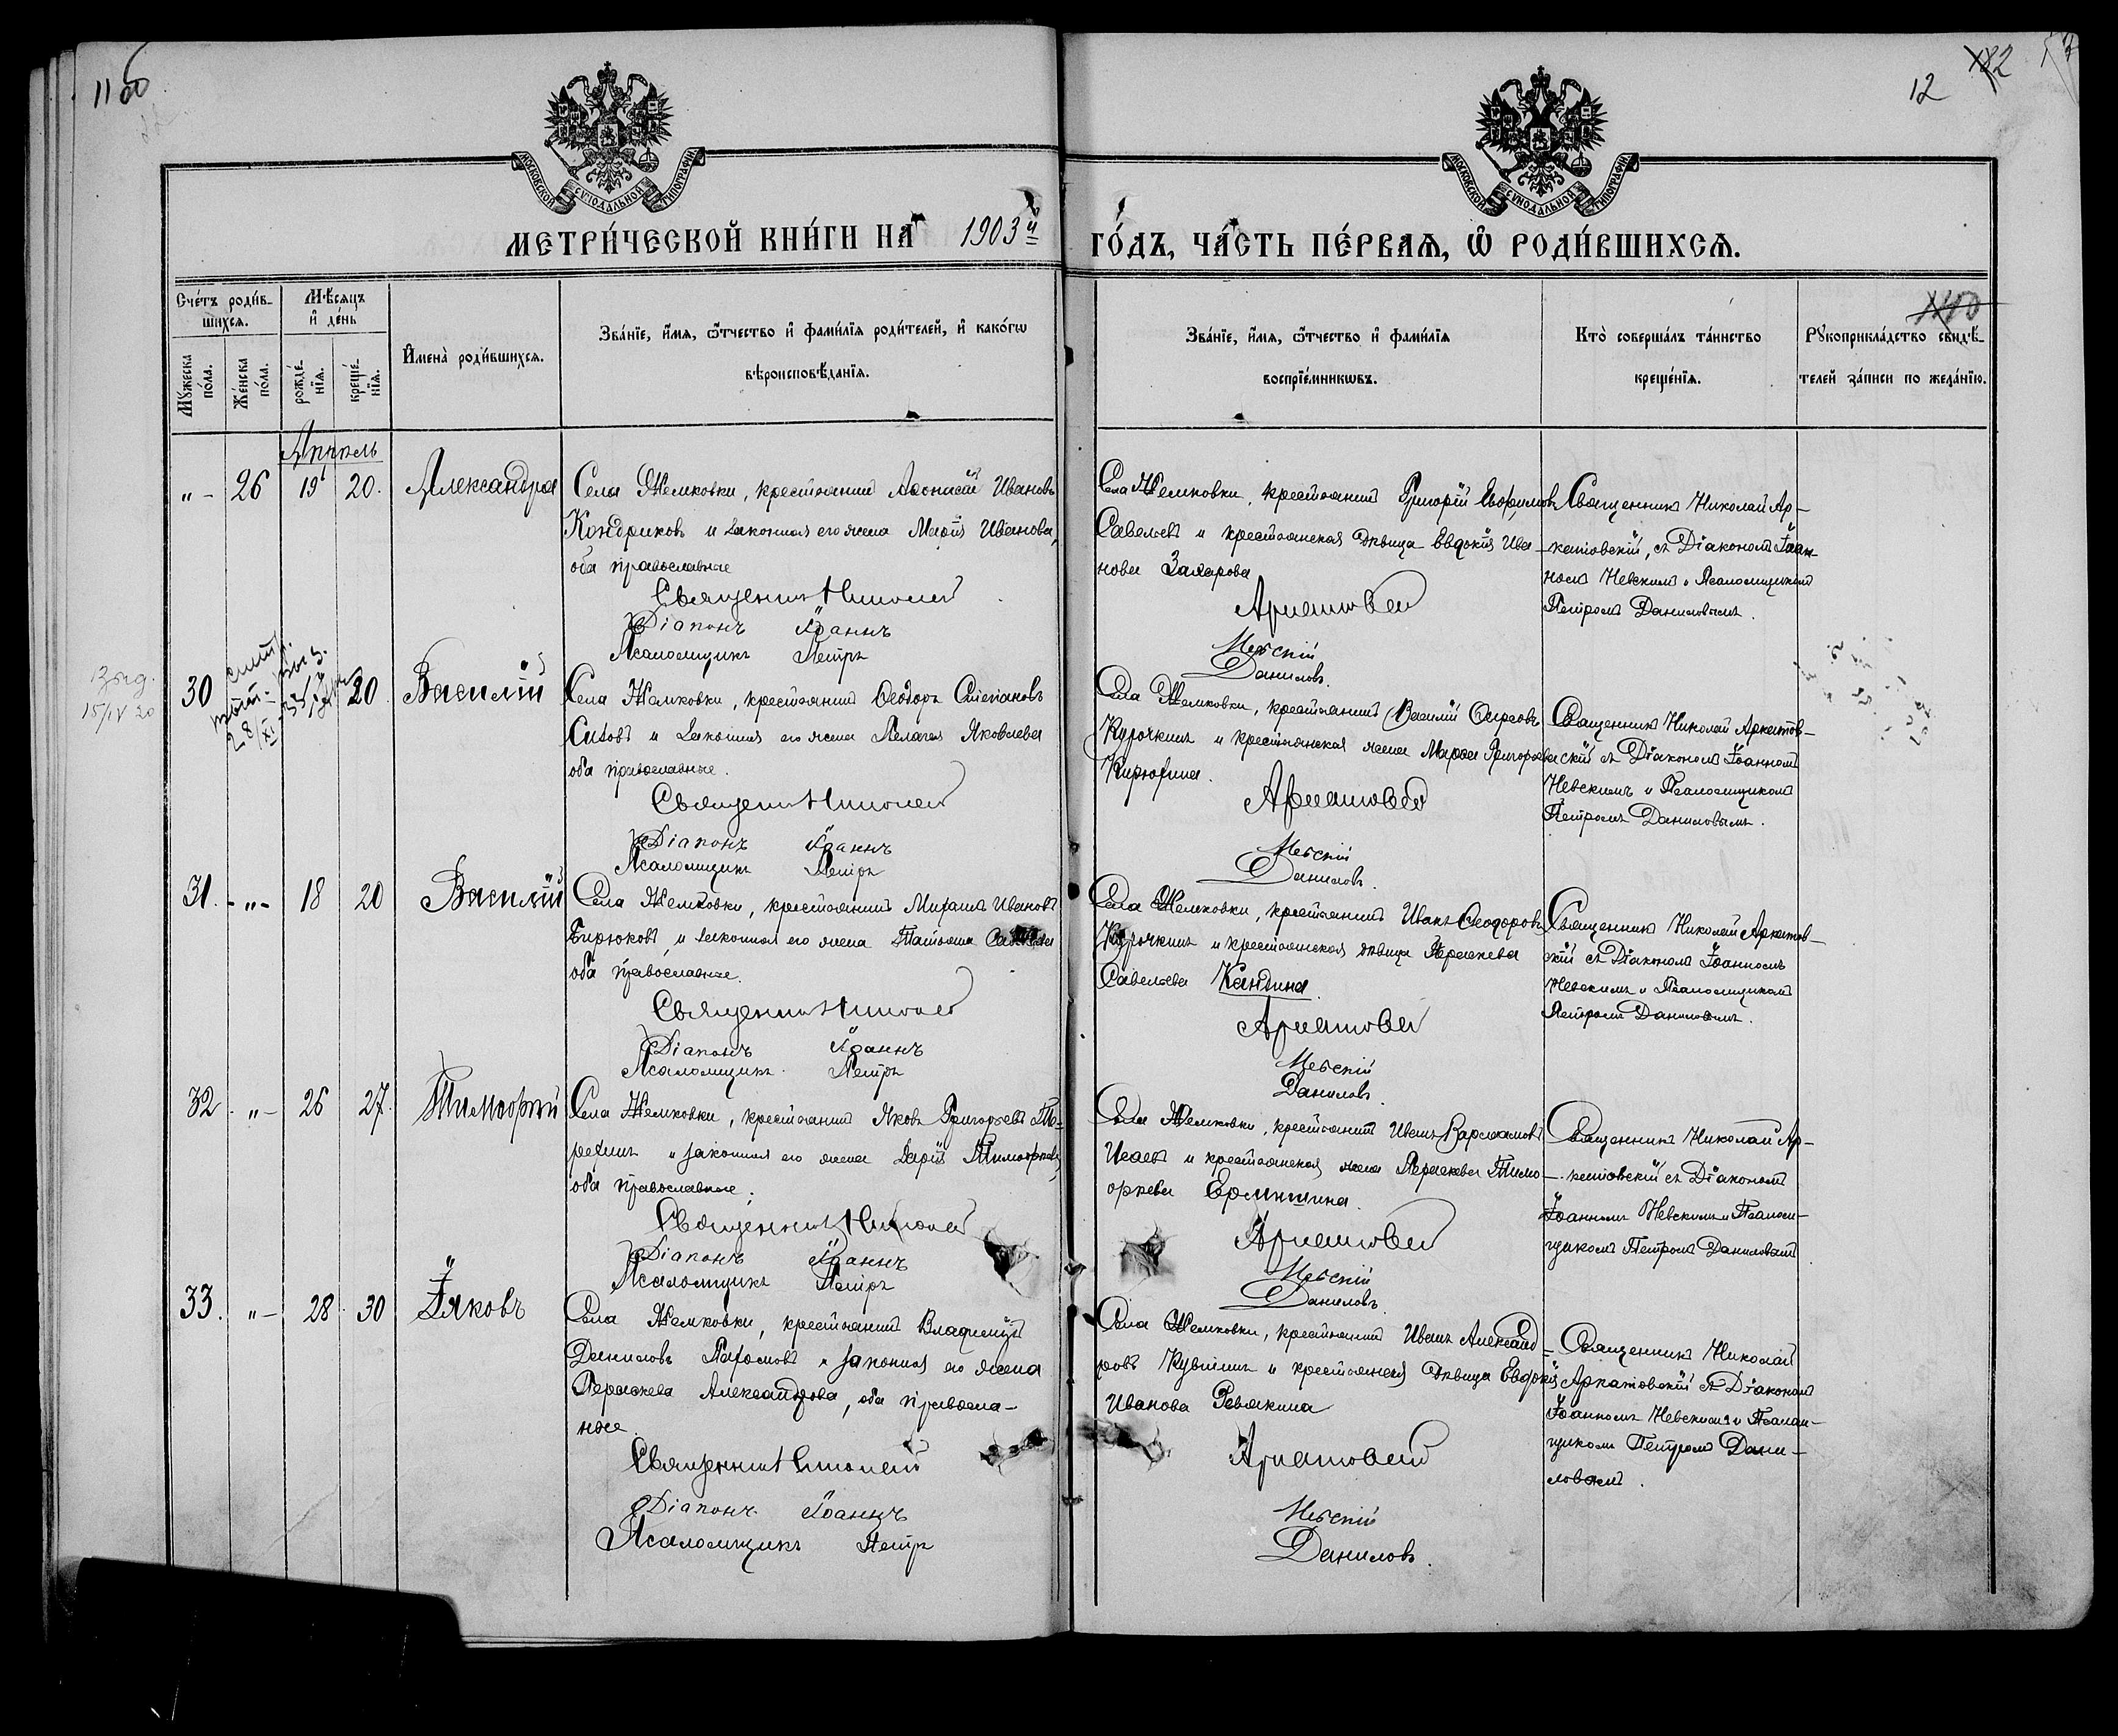 11об
12
МОСКОВСКОЙ СѴНОДАЛЬНОЙ ТИПОГРАФІИ
МОСКОВСКОЙ СѴНОДАЛЬНОЙ ТИПОГРАФІИ
МЕТРИ́ЧЕСКОЙ КНИ́ГИ НА 1903й
ГО́ДЪ, ЧА́СТЬ ПЕ́РВАѦ, Ѽ РОДИ́ВШИХСѦ.
Сче́тъ роди́в-
шихсѧ.
Мѣ́сѧцъ
и҆ де́нь
Мꙋжеска по́ла.
Же́нска по́ла.
рожде́-
нїѧ.
креще́-
нїѧ.
И҆мена̀ роди́вшихсѧ.
Зва́нїе, и҆́мѧ, ѻ҆́тчество и҆ фами́лїѧ роди́телей, и҆ како́гѡ
вѣроисповѣ́данїѧ.
Зва́нїе, и҆́мѧ, ѻ҆́тчество и҆ фами́лїѧ
воспрїе́мникѡвъ.
Кто̀ соверша́лъ та́инство
креще́нїѧ.
Рꙋкоприкла́дство свидѣ́-
телей за́писи по жела́нїю.
Апрѣль
"- 26 19 20. Александра
Села Жемковки, крестьянинъ Аѳонасій Ивановъ
Кондриковъ и законная его жена Марія Иванова,
оба православные
Священникъ Николай
Діаконъ Іоаннъ
Псаломщикъ Петръ
Села Жемковки, крестьянинъ Григорій Евфимовъ
Савельевъ и крестьянская дѣвица Евдокія Ива-
нова Захарова
Аркатовскій
Невскій
Даниловъ.
Священникъ Николай Ар-
катовскій, съ Діакономъ Іоан-
номъ Невскимъ и Псаломщикомъ
Петромъ Даниловымъ.
15/IV 20
30 20 Василій
Села Жемковки, крестьянинъ Ѳеодоръ Степановъ
Сизовъ и законная его жена Пелагея Яковлева
оба православные.
Священникъ Николай
Діаконъ Іоаннъ
Псаломщикъ Петръ
Села Жемковки, крестьянинъ Василій
Курочкинъ и крестьянская жена Григорьева
Кирюхина.
Аркатовскій
Невскій
Даниловъ.
Священникъ Николай Аркатов-
скій съ Діакономъ Іоанномъ
Невскимъ и Псаломщикомъ
Петромъ Даниловымъ.
31. -"- 18 20 Василій
Села Жемковки, крестьянинъ Михаилъ Ивановъ
Бирюковъ, и законная его жена Татьяна
оба православные.
Священникъ Николай
Діаконъ Іоаннъ
Псаломщикъ Петръ
Села Жемковки, крестьянинъ Иванъ Ѳеодоровъ
Курочкинъ и крестьянская дѣвица Параскева
Савельева Кандина.
Аркатовскій
Невскій
Даниловъ.
Священникъ Николай Аркатов-
скій съ Діакономъ Іоанномъ
Невскимъ и Псаломщикомъ
Петромъ Даниловымъ.
32. "- 26 27. Тимоѳей
Села Жемковки, крестьянинъ Яковъ Григорьевъ Те-
рехинъ и законная его жена Дарія Тимоѳеева,
оба православные.
Священникъ Николай
Діаконъ Іоаннъ
Псаломщикъ Петръ
Села Жемковки, крестьянинъ Иванъ Варлаамовъ
Исаевъ и крестьянская жена Параскева Тимо-
ѳеева
Аркатовскій
Невскій
Даниловъ
Священникъ Николай Ар-
катовскій съ Діакономъ
Іоанномъ Невскимъ и Псалом-
щикомъ Петромъ Даниловымъ
33. "- 28. 30 Іаковъ
Села Жемковки, крестьянинъ Владиміръ
Даниловъ Пахомовъ и законная его жена
Параскева Александрова, оба православ-
ные.
Священникъ Николай
Діаконъ Іоаннъ
Псаломщикъ Петръ
Села Жемковки, крестьянинъ Иванъ Александ-
ровъ Кувшинъ и крестьянская дѣвица Евдокія
Иванова Ревякина
Аркатовскій
Невскій
Даниловъ.
Священникъ Николай
Аркатовскій съ Діакономъ
Іоанномъ Невскимъ и Псалом-
щикомъ Петромъ Дани-
ловымъ.